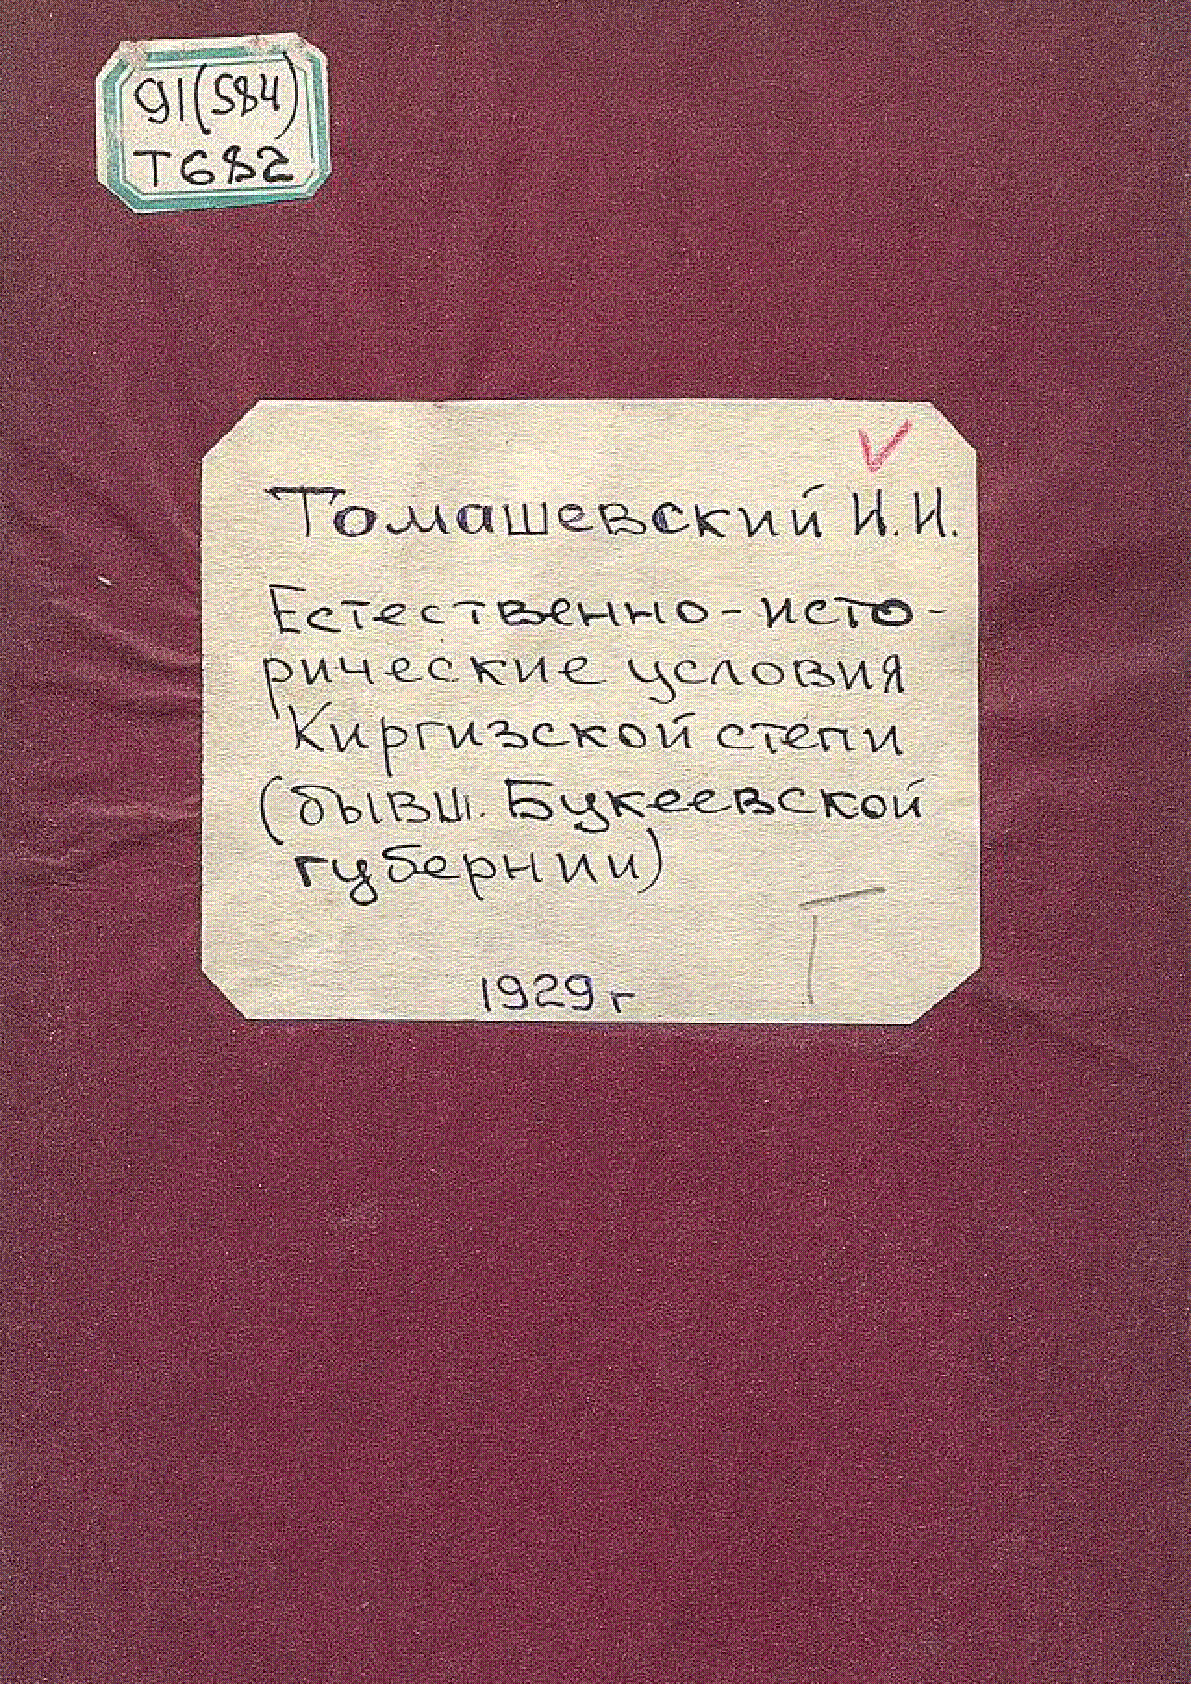 91(584)
Т682
Томашевский И.И.
Естественно-исто-
рические условия
Киргизской степи
(бывш. Букеевской
губернии)
1929 г